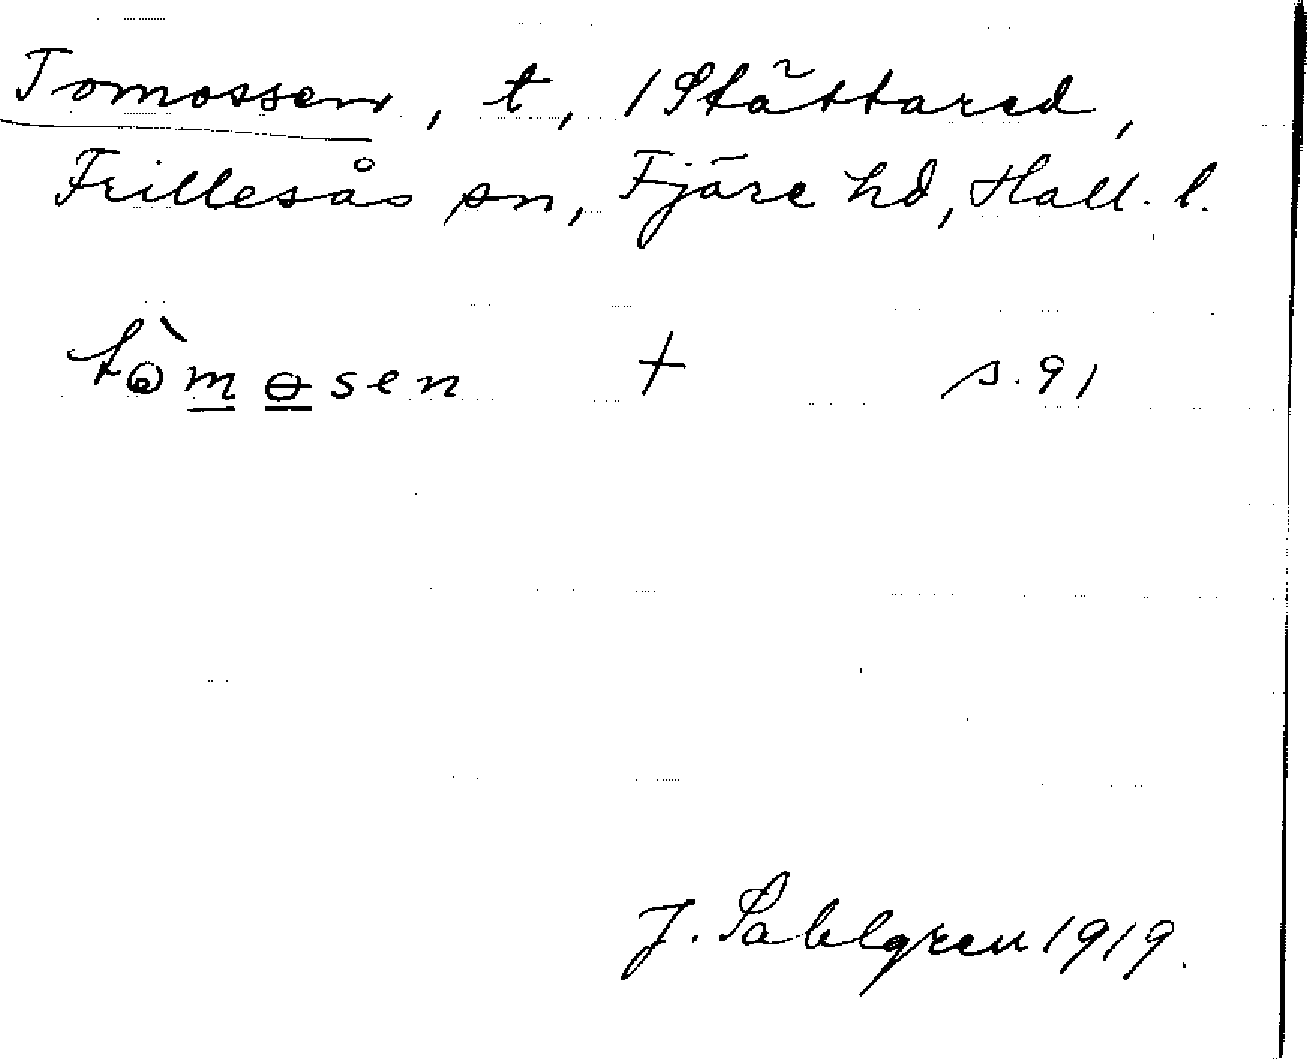 Tomossen, t, 1 Stättared,
Frillesås sn, Fjäre hd, Hall. l.
tòmɵsen + s. 91
J. Sahlgren 1919.